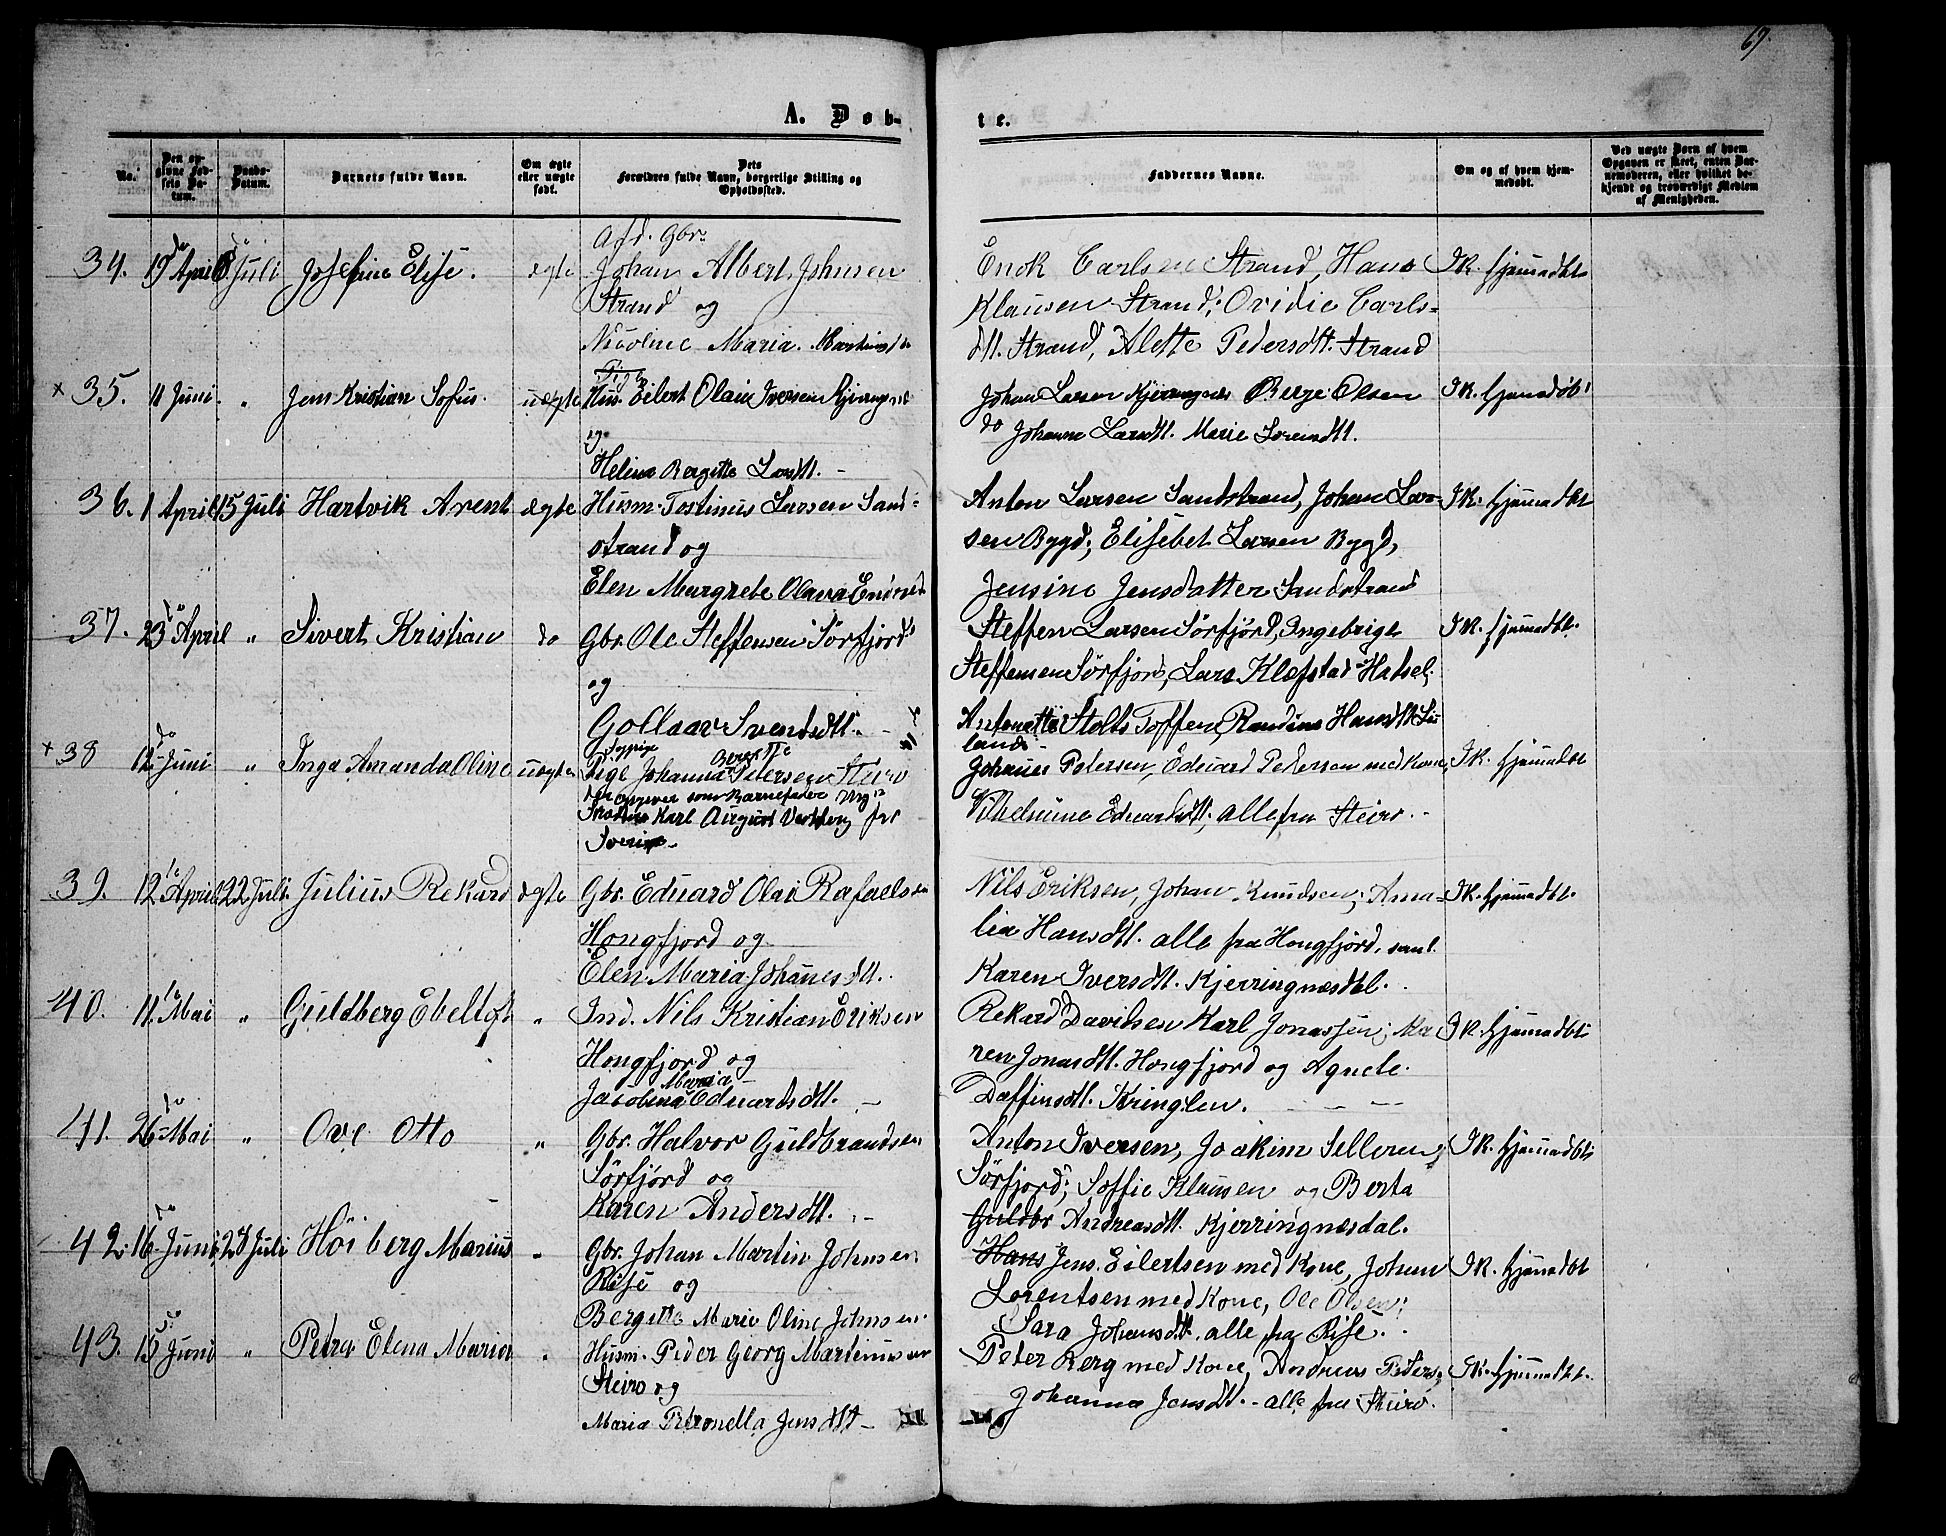 69.
A. Døb-
te.
No.
Den op-
givne Fød-
sels Da-
tum.
Daabs-
Datum.
Barnets fulde Navn.
Om ægte
eller uægte
født.
Dets
Forældres fulde Navn, borgerlige Stilling og
Opholdssted.
Faddernes Navne.
Om og af hvem hjem-
medøbt.
Ved uægte Børn af hvem
Opgaven er skeet, enten Bar-
nemoderen, eller hvilket be-
kjendt og troværdigt Medlem
af Menigheden.
34. 19 April 8 Juli Josefine Elise. ægte
Gbr.
Johan Albert Johnsen
Strand og
Nicoline Maria
Enok Carlsen Strand, Hans
Klausen Strand; Ovidie Carls-
dtt. Strand, Alette Pedersdtt. Strand
IK. hjemmedbt
× 35. 11 Juni " Jens Kristian Sofus. uægte
Eilert Olain Iversen
og
Helina Bergitte Larsdtt. -
Johan Larsen Kjerringnes Berge Olsen
do Johanna Larsdtt. Marie Sorensdtt.
IK. hjemmedøbt
36. 1 April 15 Juli Hartvik Arent ægte
Husm. Tostinus Larsen Sand-
strand og
Elen Margrete Olava
Anton Larsen Sandstrand, Johan Lar-
sen Bygd; Elisebet Larsen Bygd,
Jensine Jensdatter Sandstrand
IK. hjemmedbt
37. 23 April " Sivert Kristian do
Gbr. Ole Steffensen Sörfjord
og
Gollaar Svendsdtt. -
Steffen Larsen Sörfjörd, Ingebrigt
Steffensen Sörfjord, Lars Klefstad Hatsel;
Antonette Stolts Toffen, Randine Hansdtt
IK. hjemmedbt.
× 38 12 Juni " Inga Amanda Oline uægte
Pige Johanna Petersen Steiro
som Barnefader
Karl August fra
Sverige -
Johanes Petersen, Eduard Pedersen med Kone,
Vilhelmine Eduardsdtt, alle fra Steiro. -
IK. hjemmedbt
39. 12 April 22 Juli. Julius Rekard ægte
Gbr. Eduard Olai Rafaelsen
Hongfjord og
Elen Maria Johanesdtt.
Nils Eriksen, Johan Knudsen; Ama-
lia Hansdtt. alle fra Hongfjörd, samt
Karen Iversdtt. Kjerringnesdal.
IK. hjemmedbt.
40. 11. Mai " Guldberg Ebeltoft "
Ind. Nils Kristian Eriksen
Hongfjord og
Maria
Jacobina Eduardsdtt. -
Rekard Davidsen Karl Jonassen; Ka-
ren Jonasdtt. Hongfjord og Agnete
Daffinsdtt. Kringlen.
IK. hjemmedbt
41. 26 Mai " Ove Otto "
Gbr. Halvor Guldbrandsen
Sörfjord og
Karen Andersdtt. -
Anton Iversen, Joakim Selleren,
Sörfjord; Soffie Klausen og Berta
Guldbr Andreasdtt. Kjerringnesdal.
IK. hjemmedbt
42. 16 Juni 28 Juli Höiberg Marius "
Gbr. Johan Martin Johnsen
Rise og
Bergitte Marie Oline Johnsen
Hans Jens Eilertsen med Kone, Johan
Lorentsen med Kone, Ole Olsen;
Sara Johansdtt, alle fra Rise.
IK. hjemmedbt
43. 15 Juni " Petra Elena Maria "
Husm. Peder Georg Martinussen
Steiro og
Maria Petronella Jensdtt -
Peter Berg med Kone, Andreas Peters,
Johanna Jensdtt. - alle fra Steiro.
IK. hjemmedbt.